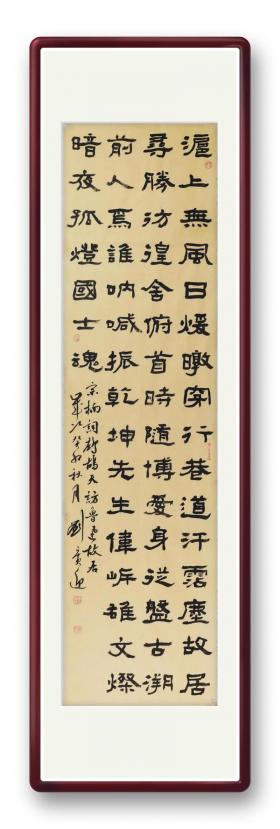 滬上無風日煖暾穿行巷道汗霑塵故居
尋勝彷徨舍俯首時隨博愛身從盤古溯
前人焉誰吶喊振乾坤先生偉岸雄文燦
暗夜孤燈國士魂
宗柏詞鷓鴣天訪魯迅故居
歲次癸卯秋月劉廣迎